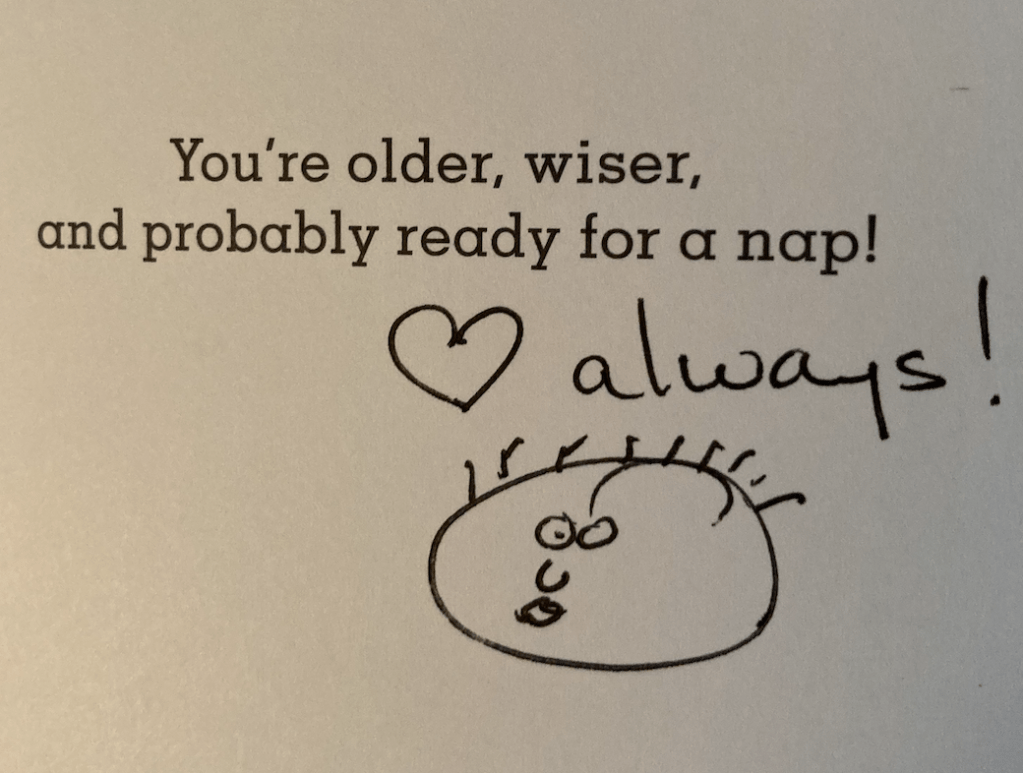 You're older, wiser,
and probably ready for a nap!
♡ always!